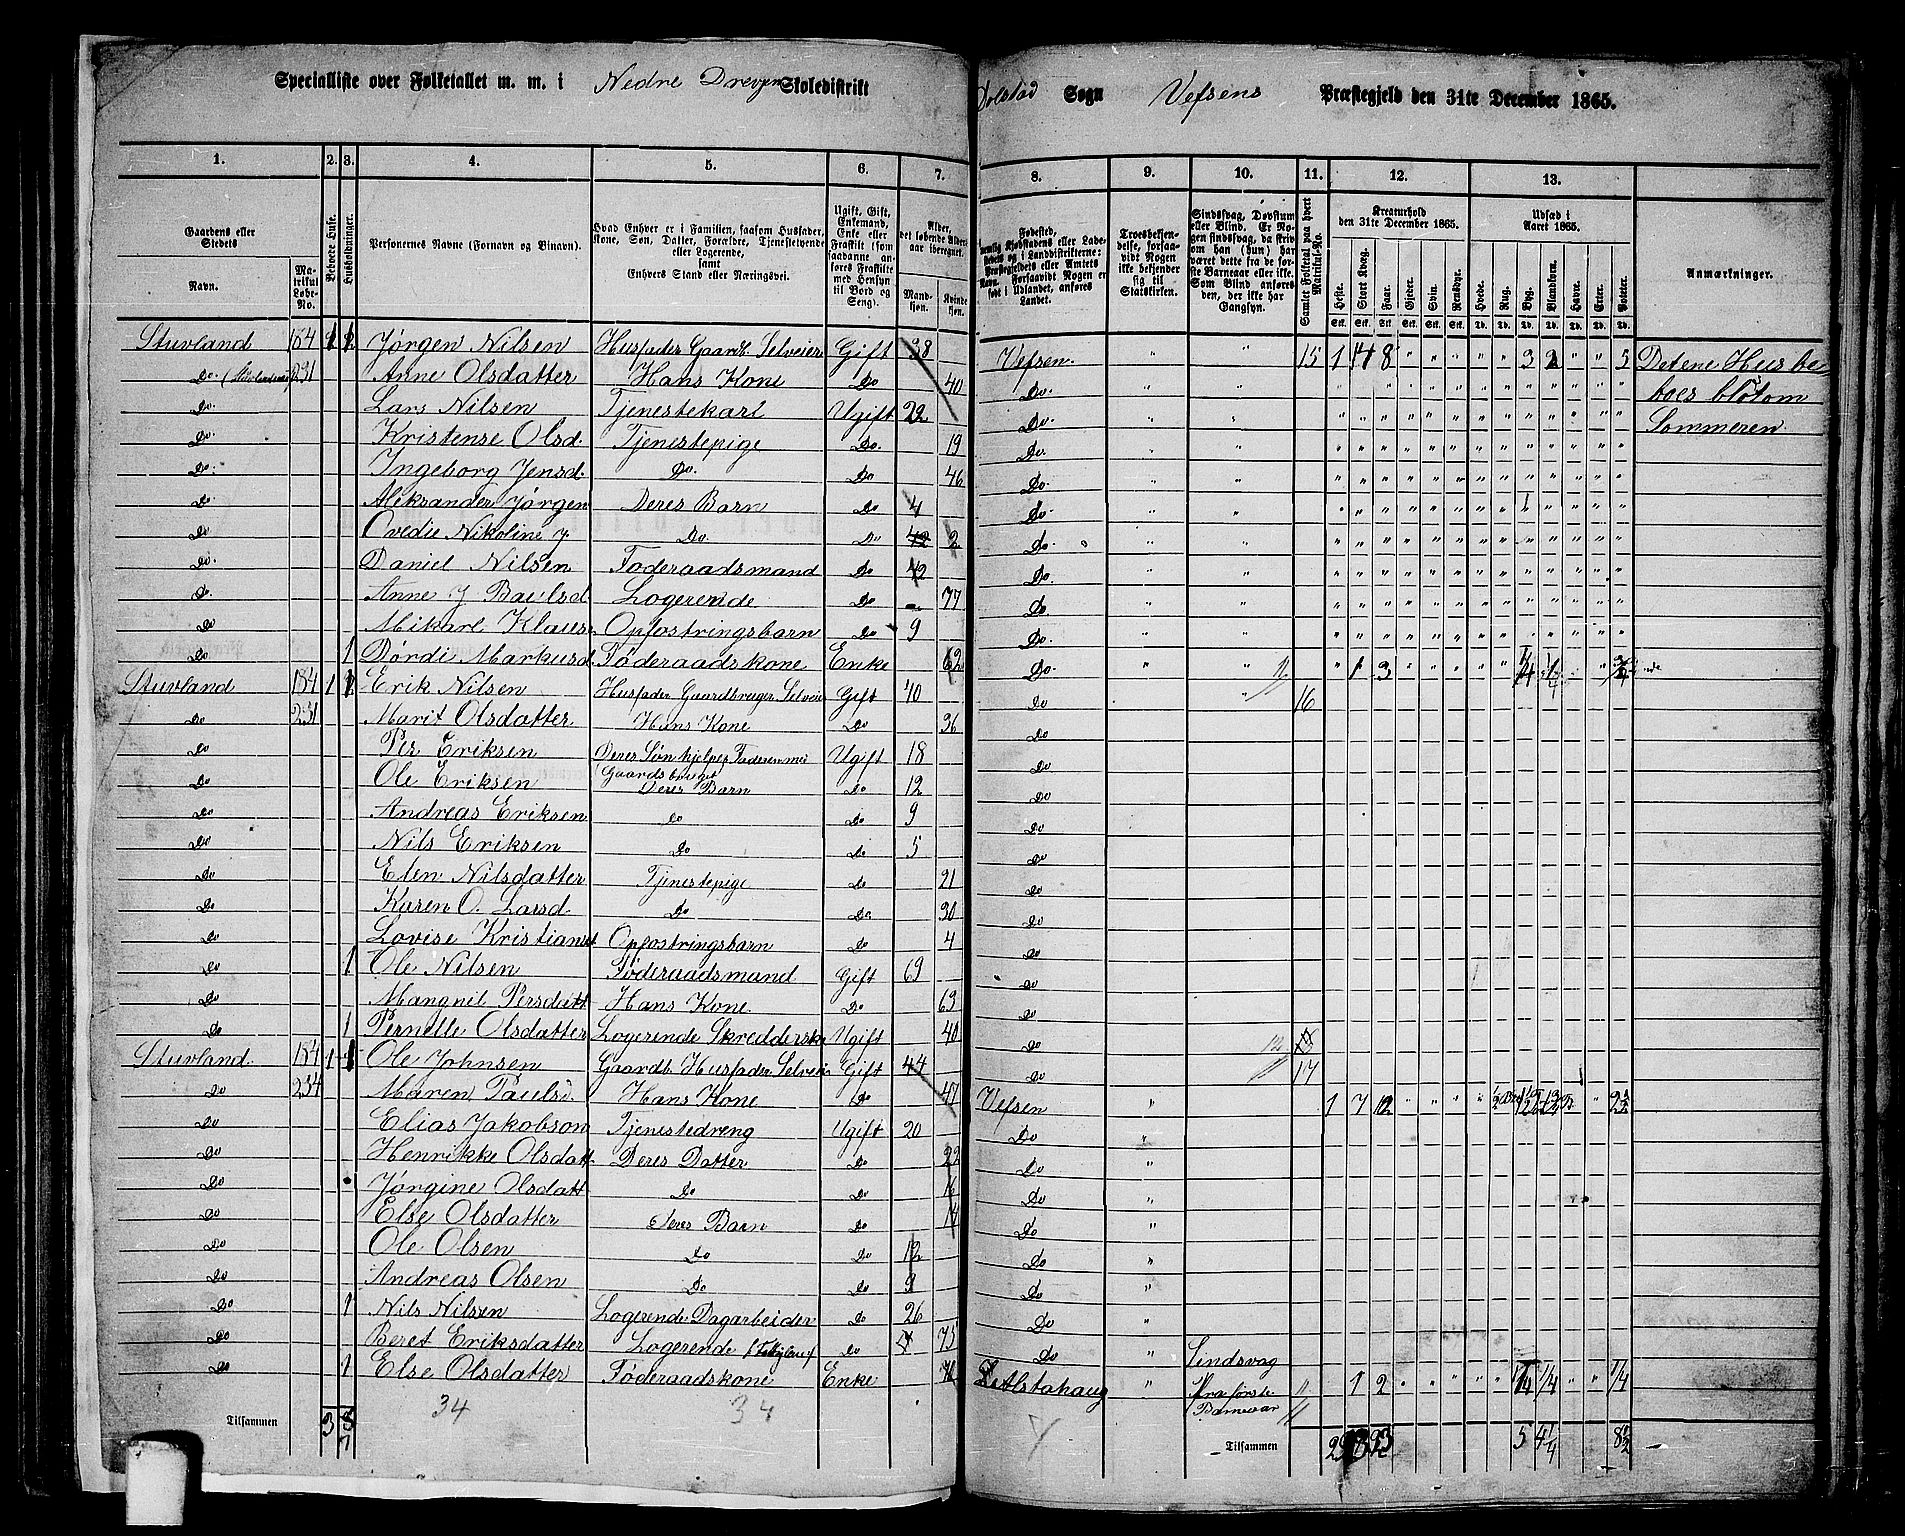 Specialliste over Folketallet m. m. i Nedre Dreyen Skoledistrikt Dolstad Sogn Vefsens Præstegjeld den 31te December 1865.
1. 2. 3. 4. 5. 6. 7. 8. 9. 10. 11. 12. 13.
Gaardens eller Stedets
Navn.
Matrikul Løbe-No.
Beboede Huse.
Husholdninger.
Personernes Navne (Fornavn og Binavn).
Hvad Enhver er i Familien, saasom Husfader, Kone, Søn, Datter, Forældre, Tjenestetyende eller Logerende,
samt
Enhvers Stand eller Næringsvei.
Ugift, Gift, Enkemand, Enke eller Fraskilt (som saadanne anføres Fraskilte med Hensyn til Bord og Seng).
Alder, det løbende Alders-aar iberegnet.
Mandkøn. Kvindekøn.
Fødested,
Troesbekjendelse, forsaavidt Nogen ikke bekjender sig til Statskirken.
Sindssvag, Døvstum eller Blind. Er Nogen sindssvag, da skrives om han (hun) har været dette fra de første Barneaar eller ikke. Som Blind anføres den, der ikke har Gangsyn.
Samlet Folketal paa hvert Matrikul-No.
Kreaturhold den 31te December 1865.
Heste. Stort Kvæg. Faar. Gjeder. Svin. Rensdyr.
Udsæd i Aaret 1865.
Hvede. Rug. Byg. Blandkorn. Havre. Erter. Poteter.
Anmærkninger.
Stuvland 184 Jørgen Nilsen Husfader Gaardb. Selveier Gift 38 Vefsen 15 1 8 3 Detene Hus be
Do. 231 Anne Olsdatter Hans Kone Do 40 Do. boes blot om
Do. Lars Nilsen Tjenestekarl Ugift 22 Do. Sommeren
Do. Kristense Olsd. Tjenestepige Do. 19 Do.
Do. Ingeborg Jensd. Do. Do 46 Do.
Do Aleksander Jørgen Deres Barn Do 4 Do.
Do. Ovedie Nikoline J Do. Do 2 Do.
Do. Daniel Nilsen Føderaadsmand Do Do.
Do. Anne J Paulsd Logerende Do 77 Do.
Do Mikael Klaus. Opfostringsbarn Do 9 Do.
Do 1 Dørdi Markusd. Føderaadskone Enke 62 Do. 1 3
Stuvland 184 1 Erik Nilsen Husfader Gaardbruger Selveier Gift 40 Do 16
Do 231 Marit Olsdatter Hans Kone Do 36 Do
Do Per Eriksen Deres Søn hjelper Faderen med Gaardsbruget Ugift 18 Do
Do Ole Eriksen Deres Barn Do 12 Do
Do Andreas Eriksen Do Do 9 Do
Do Nils Eriksen Do Do 5 Do
Do Elen Nilsdatter Tjenestepige Do 21 Do
Do Karen O. Larsd. Do Do 30 Do
Do Lovise Kristiansd Opfostringsbarn Do 4 Do
Do 1 Ole Nilsen Føderaadsmand Gift 69 Do
Do Mangnil Persdatt Hans Kone Do 63 Do
Do 1 Pernelle Olsdatter Logerende Skredderske Ugift 40 Do
Stuvland 184 1 1 Ole Johnsen Gaardb. Husfader Selveier Gift 44 Do 17
Do 234 Maren Paulsd. Hans Kone Do 47 Vefsen 1 7 12
Do Elias Jakobson Tjenestedreng Ugift 20 Do
Do Henrikke Olsdatt. Deres Datter Do 22 Do
Do Jørgine Olsdatt Do Do 16 Do
Do Else Olsdatter Deres Barn Do 14 Do
Do Ole Olsen Do Do 12 Do
Do Andreas Olsen Do Do 9 Do
Do 1 Nils Nilsen Logerende Dagarbeider Do 26 Do
Do Beret Eriksdatter Logerende Do 75 Do Sindsvag
Do 1 Else Olsdatter Føderaadskone Enke Alstahaug fra første Barneaar 1 2 1/4 1/4
Tilsammen 3 34 34 Tilsammen 5 4 1/4 8 1/2